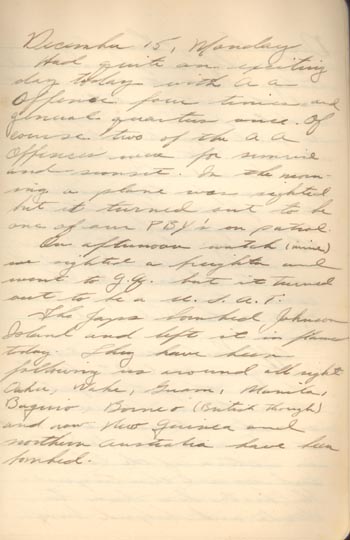 December 15, Monday
Had quite an exciting
day today with A A
Offence four times and
general quarters once. Of
course two of the A.A
Offences were for sunrise
and sunset. In the morn-
ing a plane was sighted
but it turned out to be
one of our PBY's on patrol.
On afternoon watch (mine)
we sighted a freighter and
went to G.Q. but it turned
out to be a U.S.A.T.
The Japs bombed Johnson
Island and left it in flames
today. They have been
following us around all right
Oahu, Wake, Guam, Manila,
Baguio Borneo (British though)
and now New Guinea and
northern Australia have been
bombed.